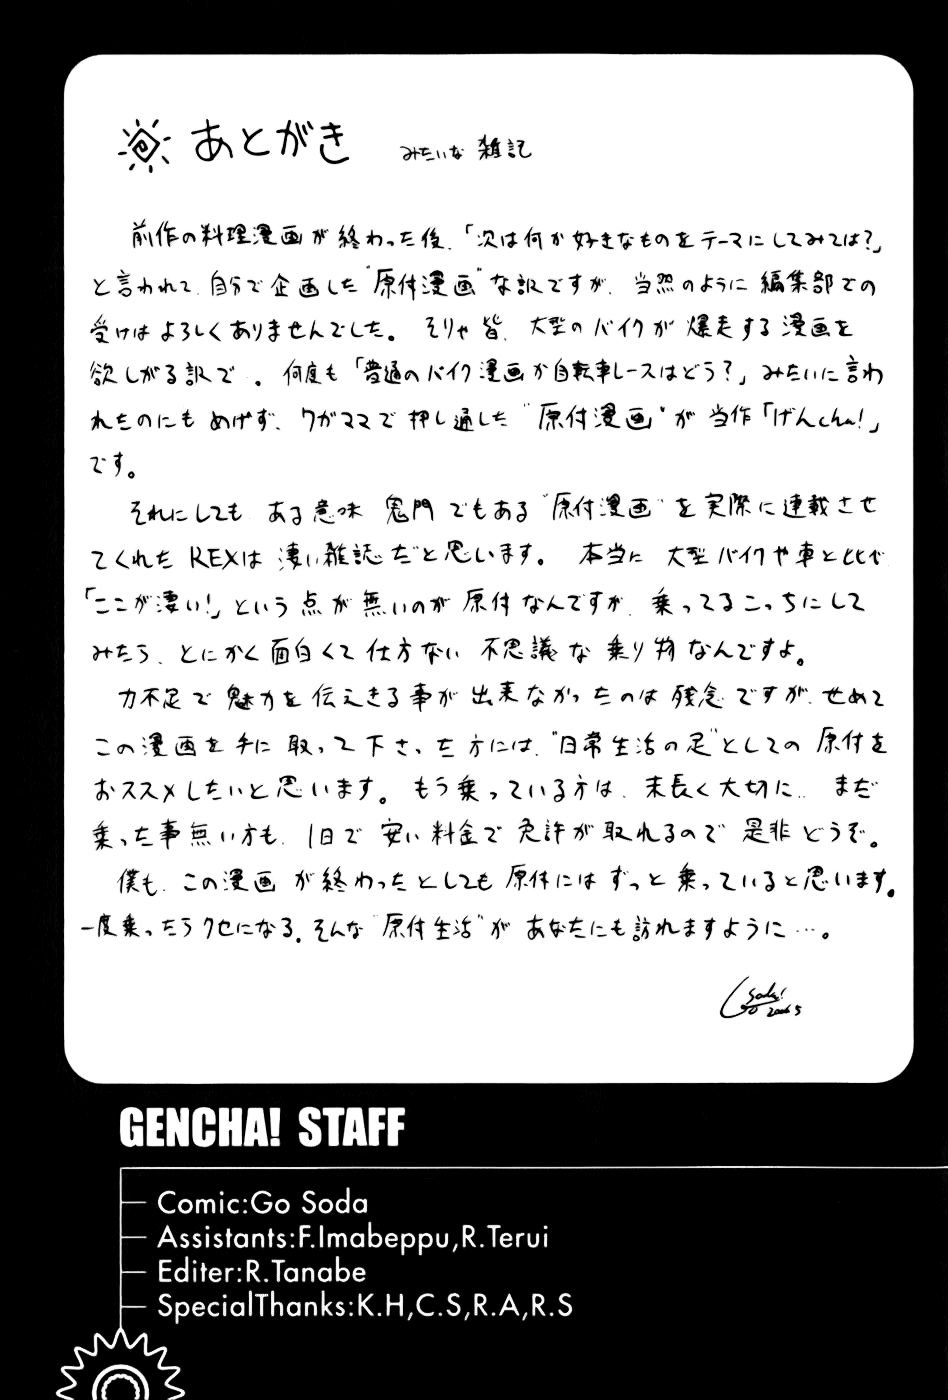 あとがき みたいな 雑記
前作の料理漫画が終わった後、「次は何か好きなものをテーマにしてみては?」
と言われて、自分で企画した"原付漫画"な訳ですが、当然のように編集部での
受けはよろしくありませんでした。そりゃ皆、大型のバイクが爆走する漫画を
欲しがる訳で。何度も「普通のバイク漫画か自転車レースはどう?」みたいに言わ
れたのにもめげず、ワガママで押し通した"原付漫画"が当作「げんcha!」
です。
それにしてもある意味鬼門でもある"原付漫画"を実際に連載させ
てくれたREXは凄い雑誌だと思います。本当に大型バイクや車と比べ
「ここが凄い!」という点が無いのが原付なんですが、乗ってるこっちにして
みたら、とにかく面白くて仕方ない不思議な乗り物なんですよ。
力不足で魅力を伝えきる事が出来なかったのは残念ですが、せめて
この漫画を手に取って下さった方には、"日常生活の足"としての原付を
おススメしたいと思います。もう乗っている方は、末長く大切に…まだ
乗った事無い方も、1日で安い料金で免許が取れるので是非どうぞ。
僕も、この漫画が終わったとしても原付にはずっと乗っていると思います。
一度乗ったらクセになる。そんな"原付生活"があなたにも訪れますように…。
Go Soda! 2006 5
GENCHA! STAFF
Comic:Go Soda
Assistants:F.Imabeppu,R.Terui
Editer:R.Tanabe
SpecialThanks:K.H,C.S,R.A,R.S